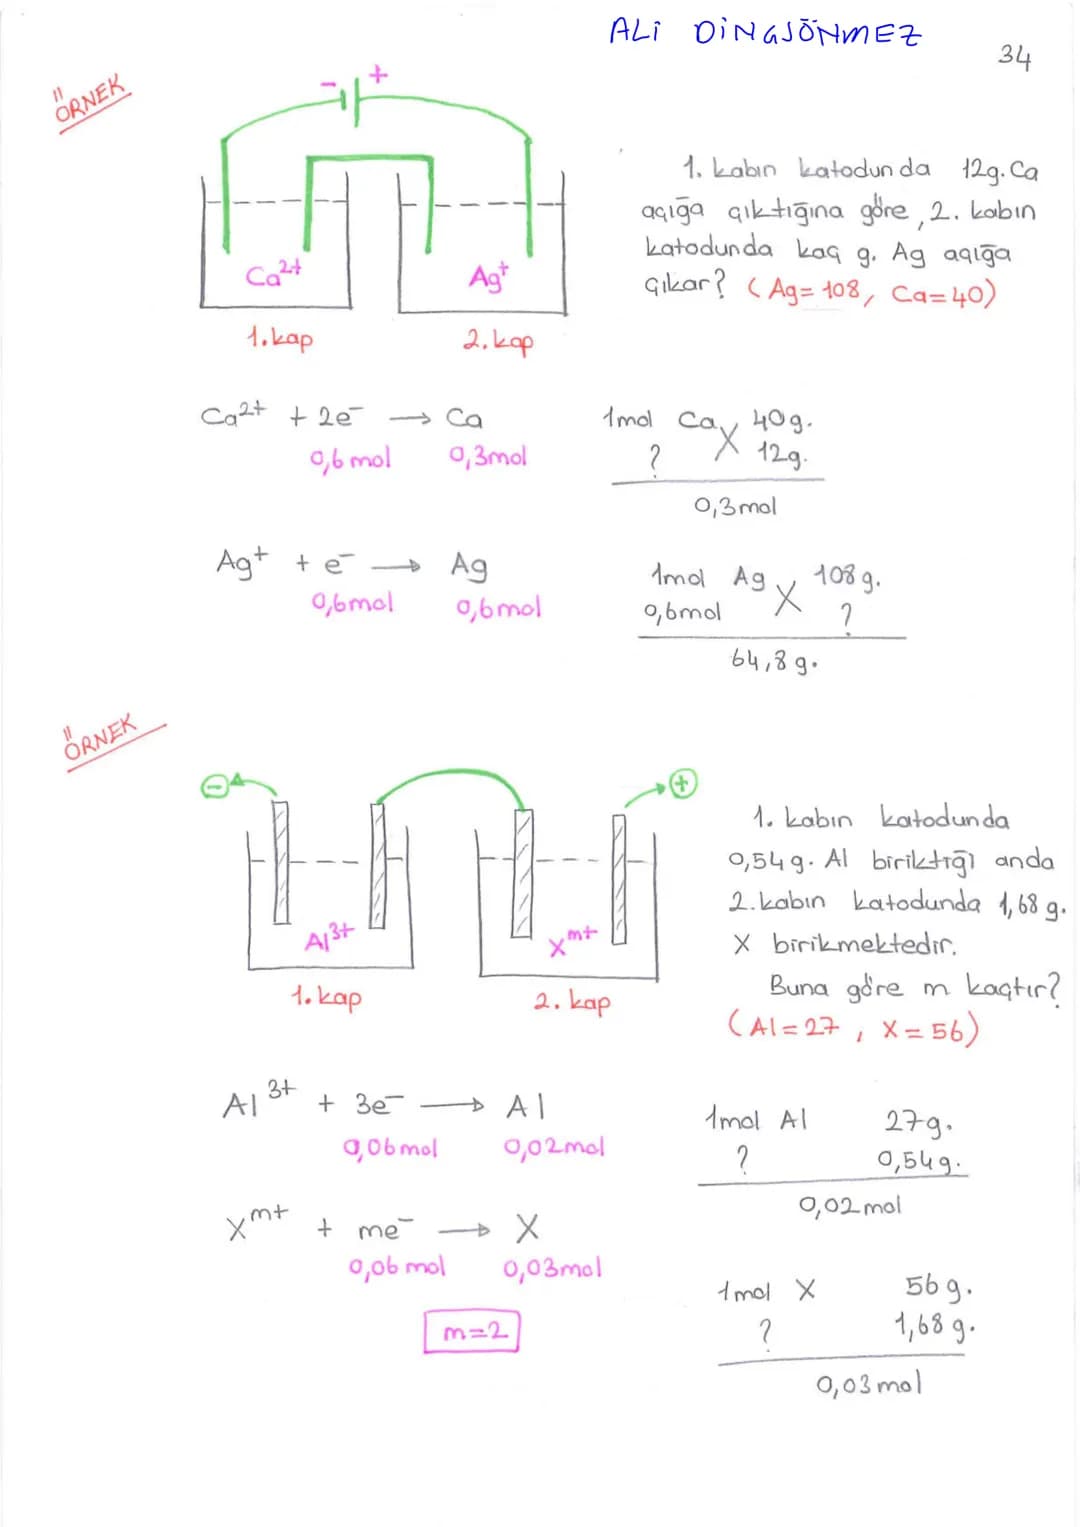 ALİ DİNÇSÖNMEZ
34
ÖRNEK
- +
Ca²⁺
Ag⁺
1.kap
2.kap
1. kabın katodunda 12g. Ca
açığa çıktığına göre, 2. kabın
katodunda kaç g. Ag açığa
çıkar? (Ag=108, Ca=40)
Ca²⁺ + 2e⁻ → Ca
0,6 mol 0,3mol
1mol Ca 40g.
? 12g.
0,3mol
Ag⁺ + e⁻ → Ag
0,6mol 0,6mol
1mol Ag 108g.
0,6mol ?
64,8 g.
ÖRNEK
- +
Al³⁺
Xᵐ⁺
1.kap
2. kap
1. kabın katodunda
0,54g. Al biriktiği anda
2.kabın katodunda 1,68 g.
X birikmektedir.
Buna göre m kaçtır?
(Al=27, X=56)
Al³⁺ + 3e⁻ → Al
0,06mol 0,02mol
1mol Al 27g.
? 0,54g.
0,02mol
Xᵐ⁺ + me⁻ → X
0,06 mol 0,03mol
m=2
1mol X 56g.
? 1,68 g.
0,03mol